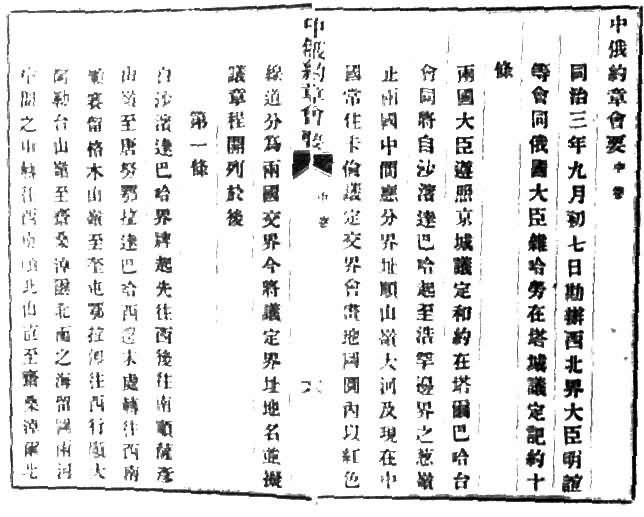 中俄約章會要 中卷
同治三年九月初七日勘辦西北界大臣明誼
等會同俄國大臣雜哈勞在塔城議定記約十
條
兩國大臣遵照京城議定和約在塔爾巴哈台
會同將自沙濱達巴哈起至浩罕邊界之葱嶺
止兩國中間應分界址順山嶺大河及現在中
國常住卡倫議定交界會畫地圖圖內以紅色
中俄約章會要 中卷 六
線道分為兩國交界今將議定界址地名並擬
議章程開列於後
第一條
自沙濱達巴哈界牌起先往西後往南順薩彥
山嶺至唐努鄂拉達巴哈西邊末處轉往西南
順賽留格木山嶺至奎屯鄂拉卽往西行順大
阿勒台山嶺至齋桑淖爾北面之海留圖兩河
中間之山轉往西南順此山直至齋桑淖爾北